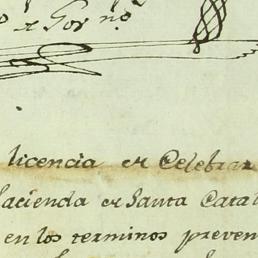 licencia de Celebrar
hacienda de Santa Catal
en los terminos preven